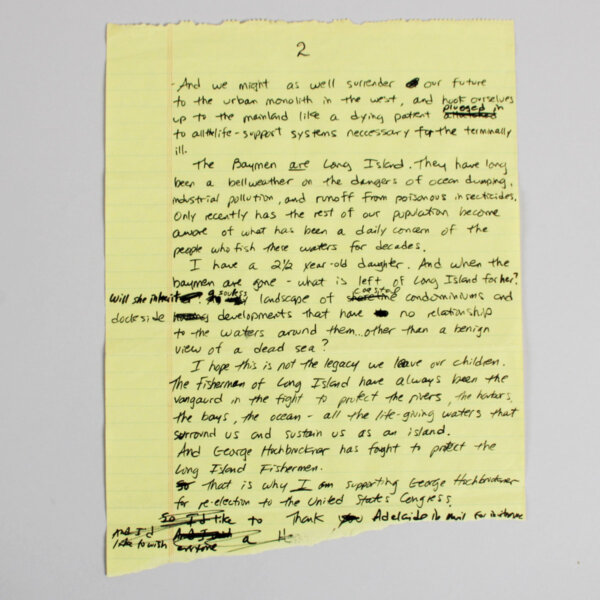 2
- And we might as well surrender our future
to the urban monolith in the west, and hook ourselves
up to the mainland like a dying patient plugged in
to all the life-support systems neccessary for the terminally
ill.
The Baymen are Long Island. They have long
been a bellweather on the dangers of ocean dumping,
industrial pollution, and runoff from poisonous insecticides.
Only recently has the rest of our pupulation become
aware of what has been a daily concern of the
people who fish these waters for decades.
I have a 2½ year-old daughter. And when the
baymen are gone - what is left of Long Island for her?
Will she inherit a souless landscape of coastal condominiums and
dockside developments that have no relationship
to the waters around them... other than a benign
view of a dead sea?
I hope this is not the legacy we leave our children.
The Fishermen of Long Island have always been the
vangaurd in the fight to protect the rivers, the harbors,
the bays, the ocean - all the life-giving waters that
surround us and sustain us as an island.
And George Hochbruckner has fought to protect the
Long Island Fishermen.
So That is why I am supporting George Hochbruckner
for re-election to the United States Congress.
So I'd like to Thank you Adelaide for
And I'd
like to wish everyone a H